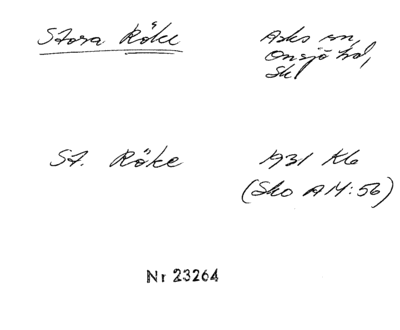 Stora Röke
Asks sn,
Onsjö hd,
Sk
St. Röke
1931 K6
(Sko AM:56)
Nr 23264